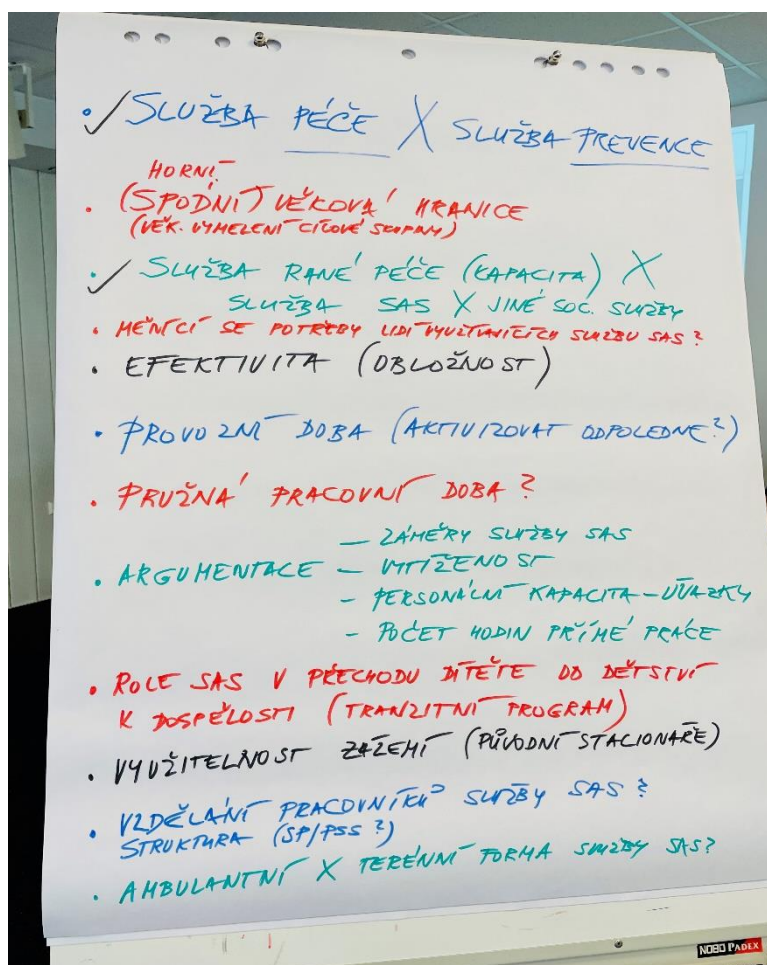 • ✓ SLUŽBA PÉČE X SLUŽBA PREVENCE
HORNÍ
• (SPODNÍ) VĚKOVÁ HRANICE
(VĚK. VYMEZENÍ CÍLOVÉ SKUPINY)
• ✓ SLUŽBA RANÉ PÉČE (KAPACITA) X
SLUŽBA SAS X JINÉ SOC. SLUŽBY
• MĚNÍCÍ SE POTŘEBY LIDÍ VYUŽÍVAJÍCÍCH SLUŽBU SAS?
• EFEKTIVITA (OBLOŽNOST)
• PROVOZNÍ DOBA (AKTIVIZOVAT ODPOLEDNE?)
• PRUŽNÁ PRACOVNÍ DOBA?
— ZÁMĚRY SLUŽBY SAS
• ARGUMENTACE — VYTÍŽENOST
- PERSONÁLNÍ KAPACITA - ÚVAZKY
- POČET HODIN PŘÍMÉ PRÁCE
• ROLE SAS V PŘECHODU DÍTĚTE OD DĚTSTVÍ
K DOSPĚLOSTI (TRANZITNÍ PROGRAM)
• VYUŽITELNOST ZÁZEMÍ (PŮVODNÍ STACIONÁŘE)
• VZDĚLÁNÍ PRACOVNÍKŮ SLUŽBY SAS?
STRUKTURA (SP/PSS?)
• AMBULANTNÍ X TERÉNNÍ FORMA SLUŽBY SAS?
NOBO PADEX